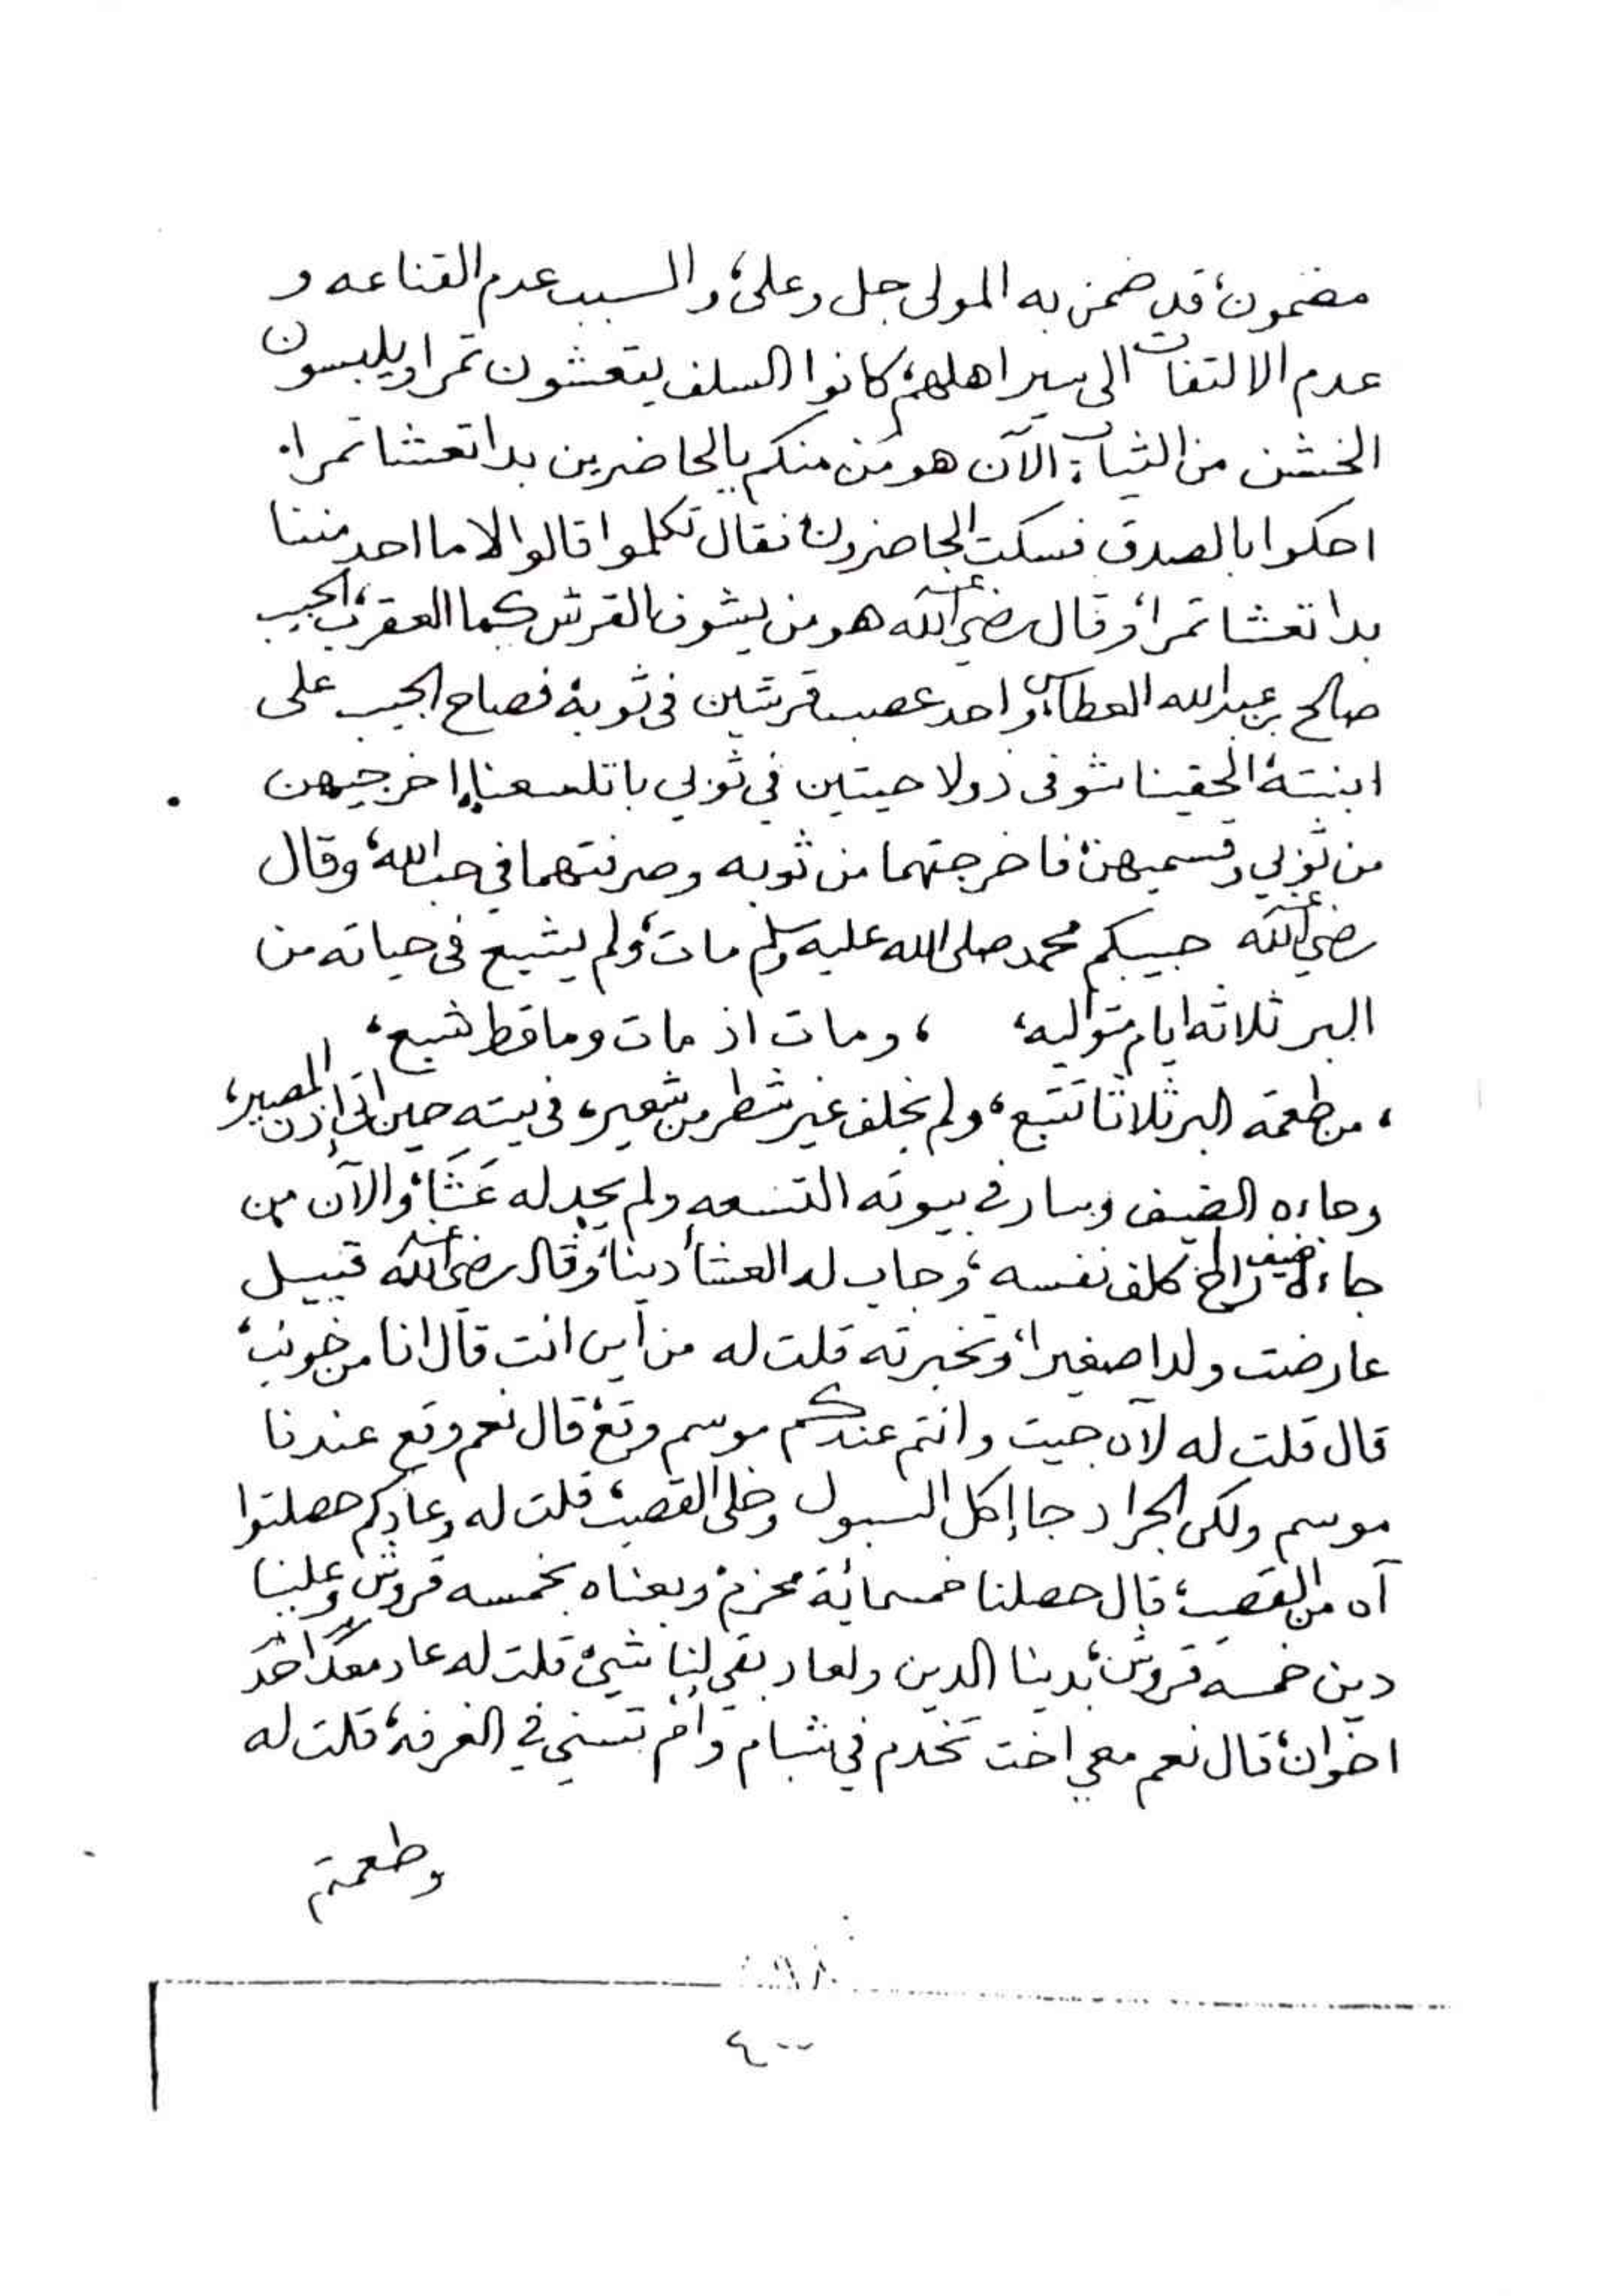 مضمون، قد ضمن به المولى جل وعلى، والسبب عدم القناعه و
عدم الالتفات الى سير اهلهم، كانوا السلف يتعشون تمرا ويلبسون
الخشن من الثياب، الآن هو من منكم يالحاضرين بداتعشا تمرا،
احكوا بالصدق فسكت الحاضرون، فقال تكلموا قالوا الا ما احد مننا
بدا تعشا تمرا، وقال رضي الله عنه هو من يشوف القرش كما العقرب، الحبيب
صالح بن عبدالله العطاس، واحد عصب قرشين في ثوبه فصاح الحبيب على
ابنته الحقينا شوفي ذولا حيتين في ثوبي باتلسعنا، اخرجيهن
من ثوبي وقسميهن، فاخرجتهما من ثوبه وصرفتهما في حب الله، وقال
رضي الله عنه حبيبكم محمد صلى الله عليه وسلم مات، ولم يشبع في حياته من
البر ثلاثه ايام متواليه، ، ومات اذ مات وما قط شبع،
، من طعمة البر ثلاثا تتبع، ولم يخلف غير شطر من شعير، في بيته حين اتى إذن المصير،
وجاءه الضيف وسار في بيوته التسعه ولم يجد له عَشَاء، والآن من
جاءه ضيف كلف نفسه، وجاب له العشاء دينا، وقال رضي الله عنه قبيل
عارضت ولدا صغيرا، وتخبرته قلت له من اين انت قال انا من خونب،
قال قلت له لآن جيت وانتم عندكم موسم وقع، قال نعم وقع عندنا
موسم ولكن الجراد جا إكل السبول وخلى القصب، قلت له وعادكم حصلتوا
آه من القصب، قال حصلنا خمسمائة محزم، وبعناه بخمسه قروش وعلينا
دين خمسة قروش، بدينا الدين ولعاد بقي لنا شيئ، قلت له عاد معك احد
اخوان، قال نعم معي اخت تخدم في شبام وام تسني في الغرفه، قلت له
وطعمتم
٤٠٠